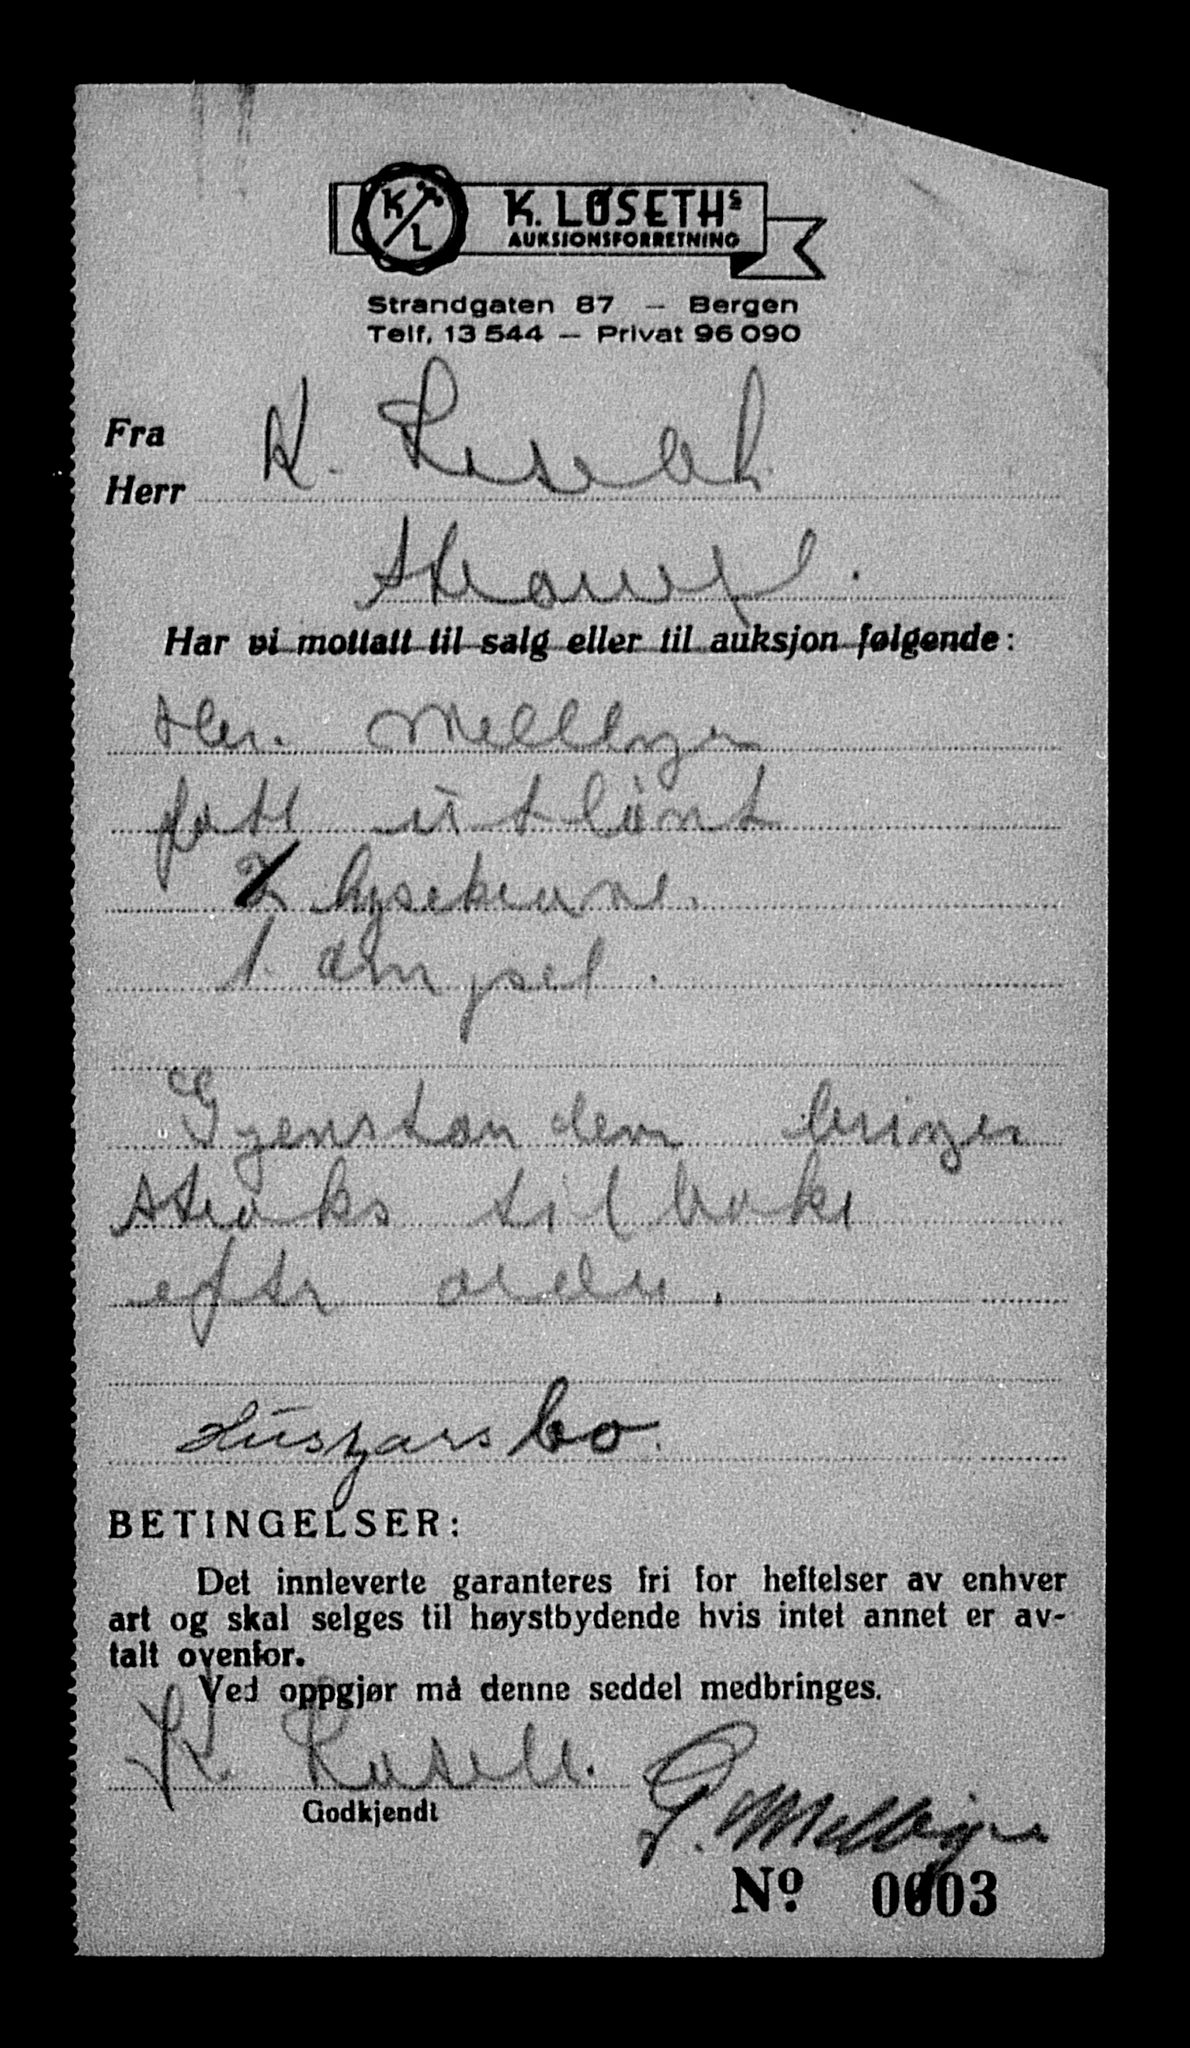 K L
K. LØSETHS
AUKSJONSFORRETNING
Strandgaten 87 — Bergen
Telf. 13 544 — Privat 96 090
Fra
Herr K.
Har vi mottatt til salg eller til auksjon følgende:
Her. Mellbye
fått utlånt
2 lysekrone.
1. ampel.
Gjenstanden bringes
straks tilbake
efter ordre.
bo.
BETINGELSER:
Det innleverte garanteres fri for heftelser av enhver
art og skal selges til høystbydende hvis intet annet er av-
talt ovenfor.
Ved oppgjør må denne seddel medbringes.
K.
Godkjendt
Mellbye
Nº. 0003